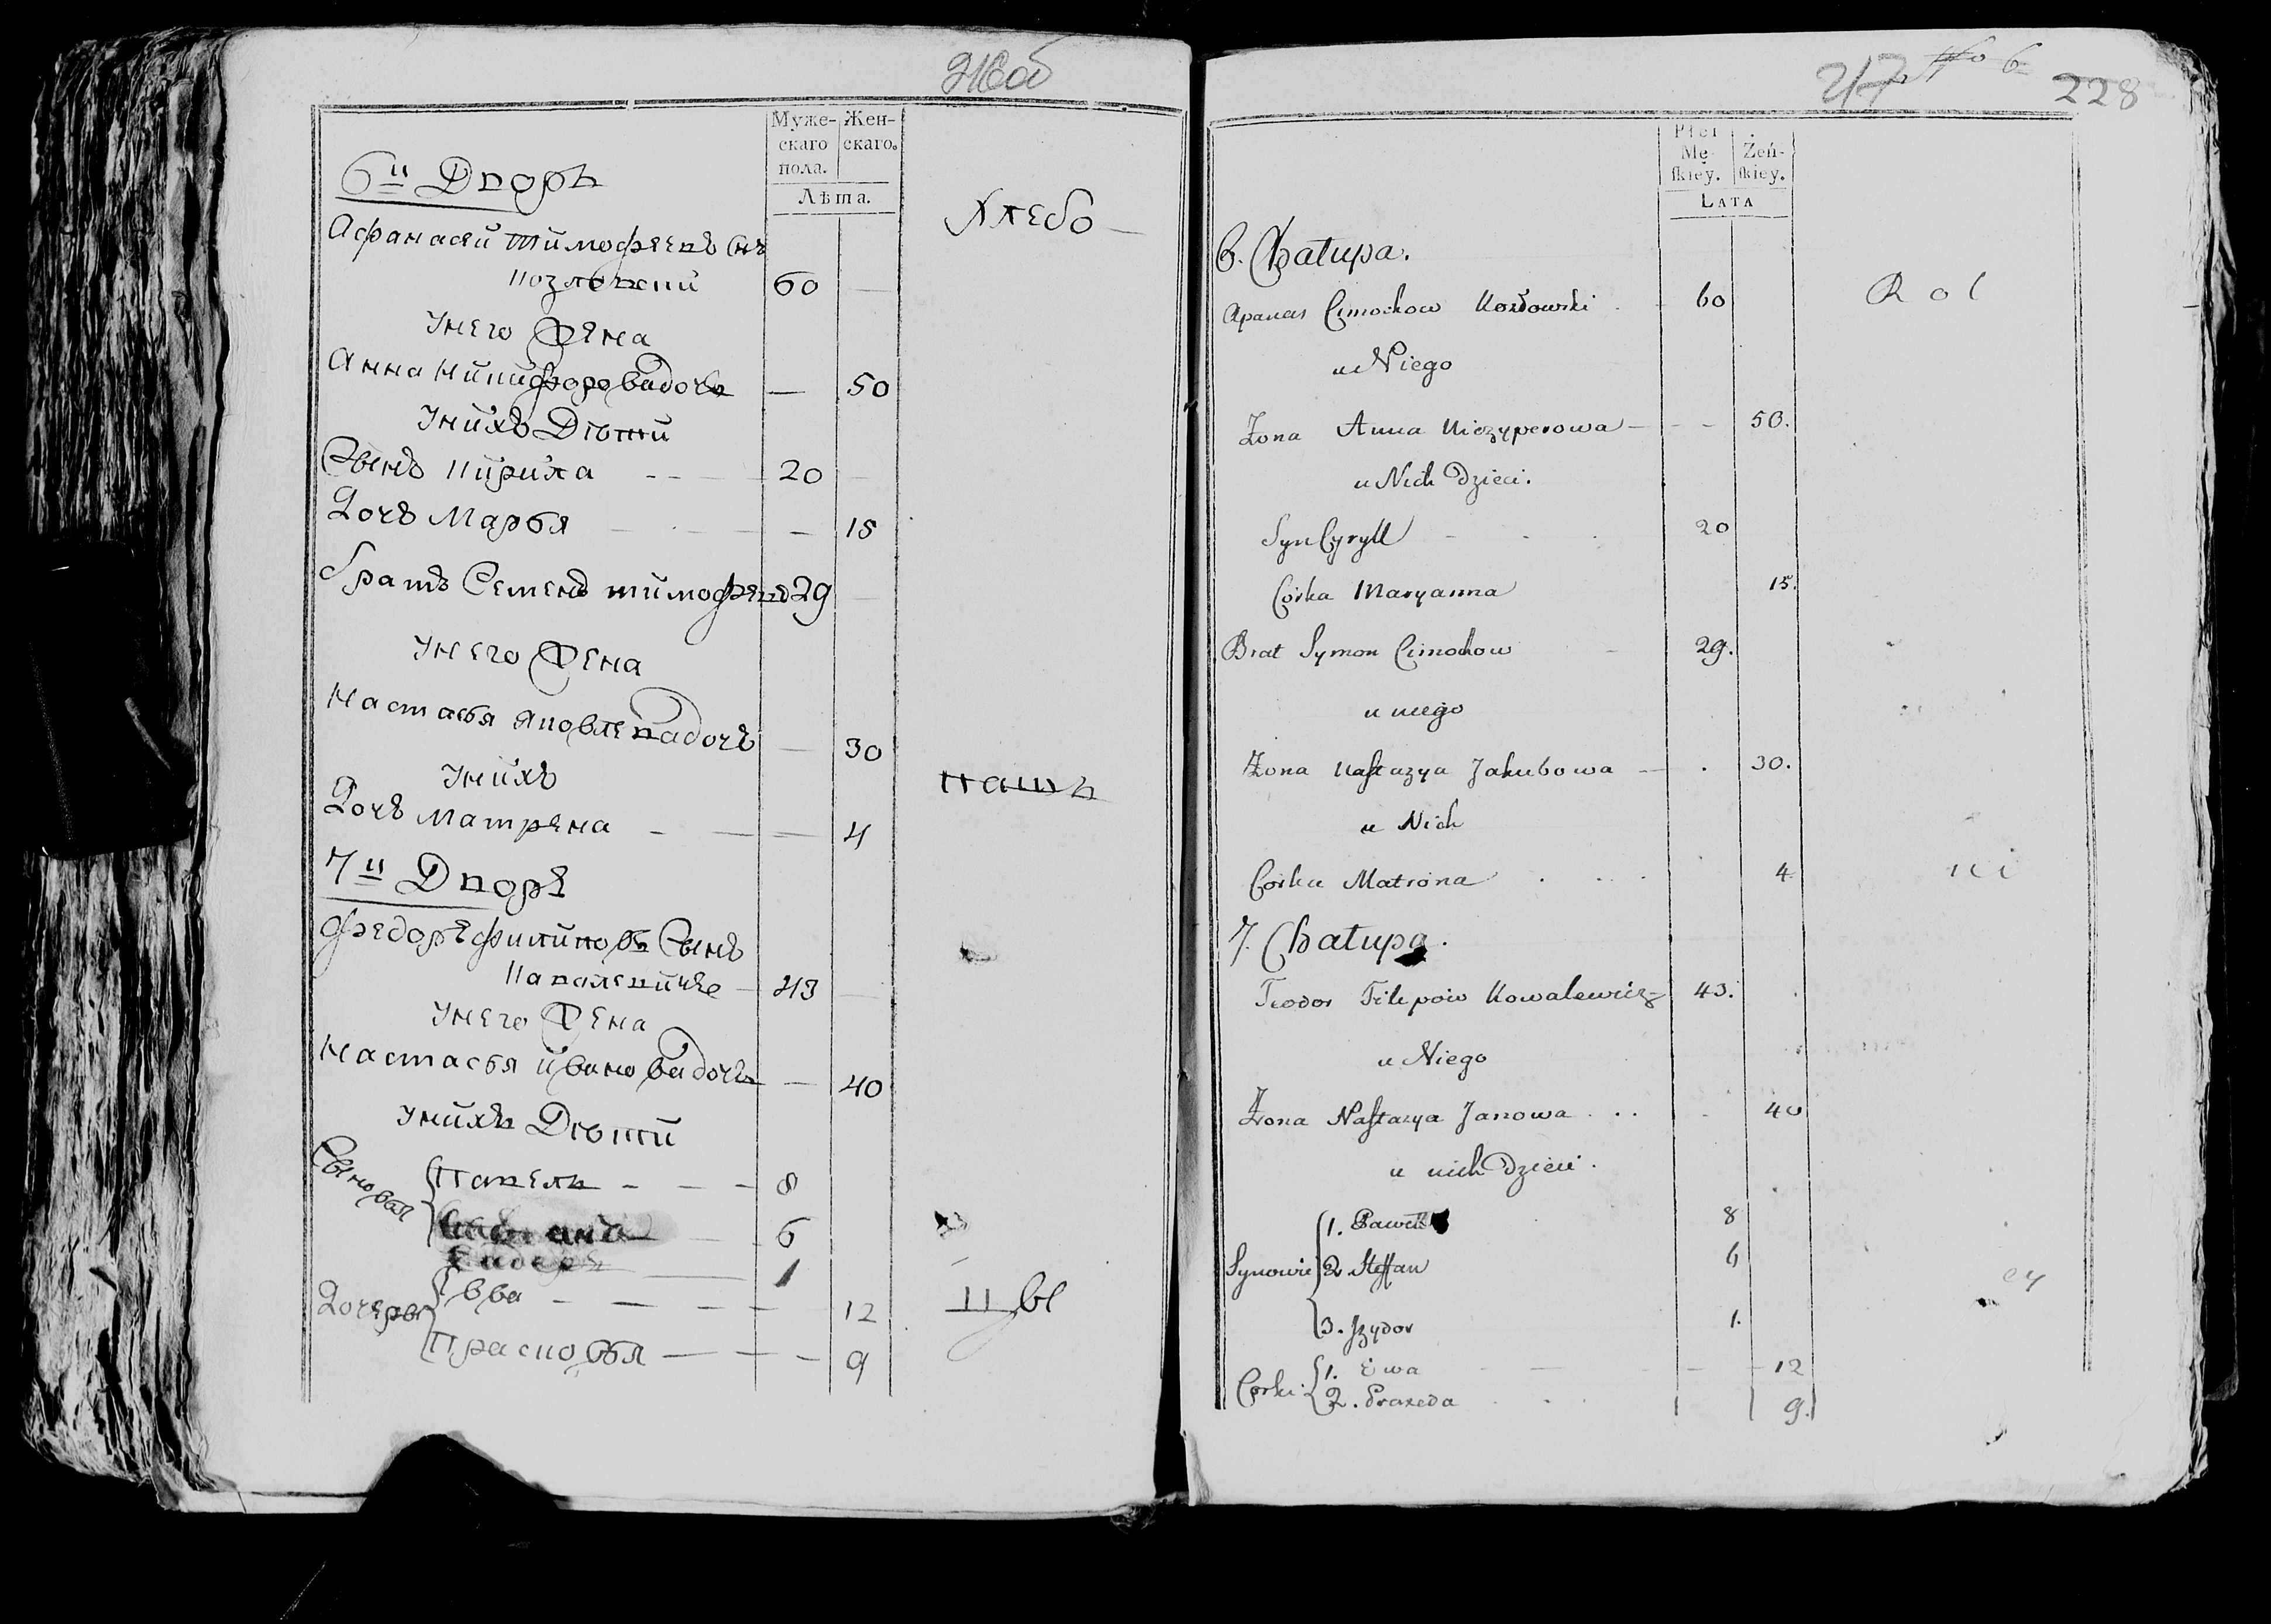 216об
Муже- Жен-
скаго скаго.
пола.
Лѣта.
6й Дворъ
Хлебо
Афанасей Тимофеевъ Снъ
Козловский 60
Унего жена
Анна Никифорова дочь 50
Унихъ Дѣти
Сынъ Кирила 20
Дочь Марья 15
братъ Семенъ тимофеевъ 29
Унего жена
Настасья яковлева дочь 30
Унихъ
пашъ
Дочь Матрена 4
7й Дворъ
Федоръ Филиповъ Сынъ
Ковалевичь 43
Унего жена
Настасья ивановна дочь 40
Унихъ Дѣти
Сыновья Павель 8
6
Сидоръ 1
Дочеры Эва 12
цы
Прасковья 9
217 228
Płci
Mę- Żeń-
ſkiey. ſkiey.
LATA
6. Chatupa.
Apanas Cimochow Kozłowski 60
Rol
u Niego
Zona Anna Niczyperowa 50.
u Nich Dzieci.
Syn Cyryll 20
Corka Maryanna 15.
Brat Symon Cimochow 29.
u niego
Zona Naſtazya Jakubowa 30.
u Nich
Corka Matrona 4
ni
7. Chatupa.
Teodor Filipow Kowalewicz 43.
u Niego
Zona Naſtazya Janowa 40
u nich Dzieci.
1. Paweł 8
Synowie 2. Steffan 6
cy
3. Jzydor 1.
Corki 1. Ewa 12
2. Praxeda 9.